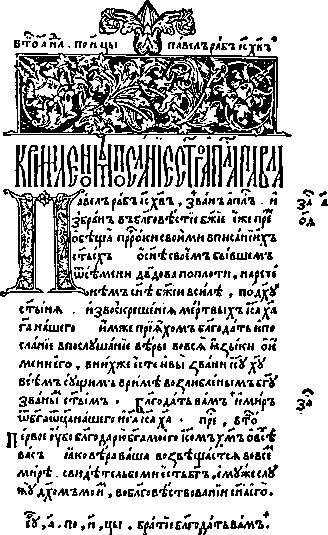 втѡ҃, а҃, нⷣѧ. по, н҃, цы павелъ рабъ іс҃ хв҃ъ
Кримленѡмъ посланїе ст҃аго ап҃ла павла
Павелъ рабъ іс҃ хв҃ъ, званъ ап҃лъ. и
збранъ въ бл҃говѣстїе бж҃їе. еже пре
ѡбѣща прⷪ҇рки своими вписанїихъ
ст҃ыхъ ѡ сн҃ѣ своемъ бывшемъ
ѿ сѣмени дв҃дова поплоти, нарече
нѣмъ сн҃ѣ бж҃їи всилѣ, подх҃у
ст҃ыни. из воскрешенїа мертвыхъ іс҃а х҃а
га҃ нашего имже прїѧхомъ благодать ипо
сланїе впослушанїе вѣры вовсѣ ꙗзыцѣ ѡи
мени его, внихже есте ивы звани іс҃у х҃у
всѣмъ сущимъ вримѣ возлюбленымъ бг҃у
званы ст҃ымъ. Благодать вамъ имиръ
ѿ бг҃а ѿца нашего иг҃а іс҃а х҃а. пре, втѡ
Первое оубѡ благодарю бг҃а моего іс҃омъ х҃мъ ѡвсѣ
васъ ꙗко вѣра ваша возвѣщаетсѧ вовсе
мирѣ. свидѣтель бо ми есть бг҃ъ, емуже слу
жу дх҃омъ мои, воблаговѣствованїи сн҃а его.
а҃. по, н҃, цы. братїе благодать вамъ.